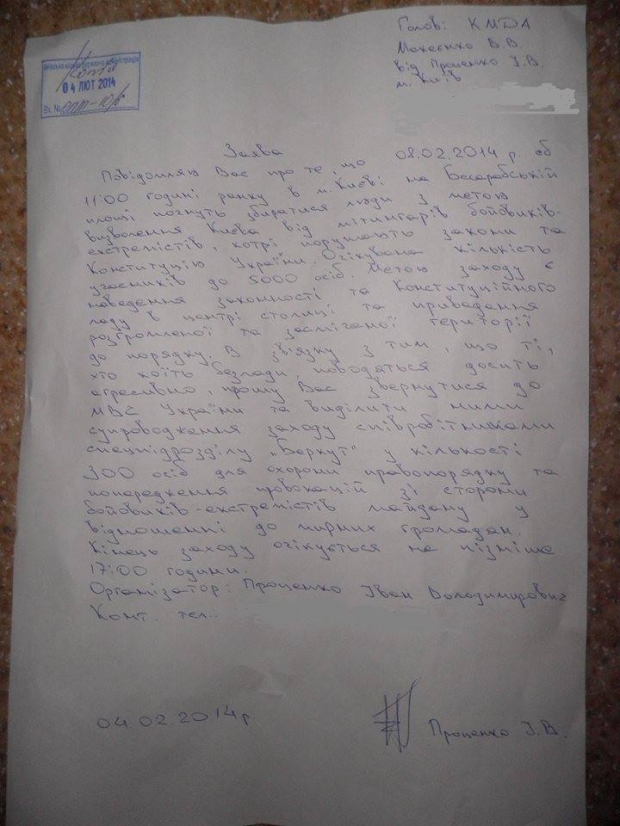 Голові КМДА
Макеєнко В.В.
від Проценко І.В.
м. Київ
Копія
04 ЛЮТ 2014
Вх. №
Заява
Повідомляю Вас про те, що 08.02.2014 р. об
11:00 годині ранку в м. Києві на Бесарабській
площі почнуть збиратися люди з метою
визволення Києва від мітингарів бойовиків-
екстремістів, котрі порушують закони та
Конституцію України. Очікувана кількість
учасників до 5000 осіб. Метою заходу є
наведення законності та Конституційного
ладу в центрі столиці та приведення
розгромленої та засміченої території
до порядку. В звязку з тим, що ті,
хто коїть безлади поводяться досить
агресивно прошу Вас звернутися до
МВС України та виділити ними
супроводження заходу співробітниками
спецпідрозділу „Беркут" у кількості
300 осіб для охорони правопорядку та
попередження провокацій зі сторони
бойовиків-екстремістів майдану у
відношенні до мирних громадян.
Кінець заходу очікується не пізніше
17:00 години.
Організатор: Проценко Іван Володимирович
Конт. тел..
04.02.2014 р
Проценко І.В.